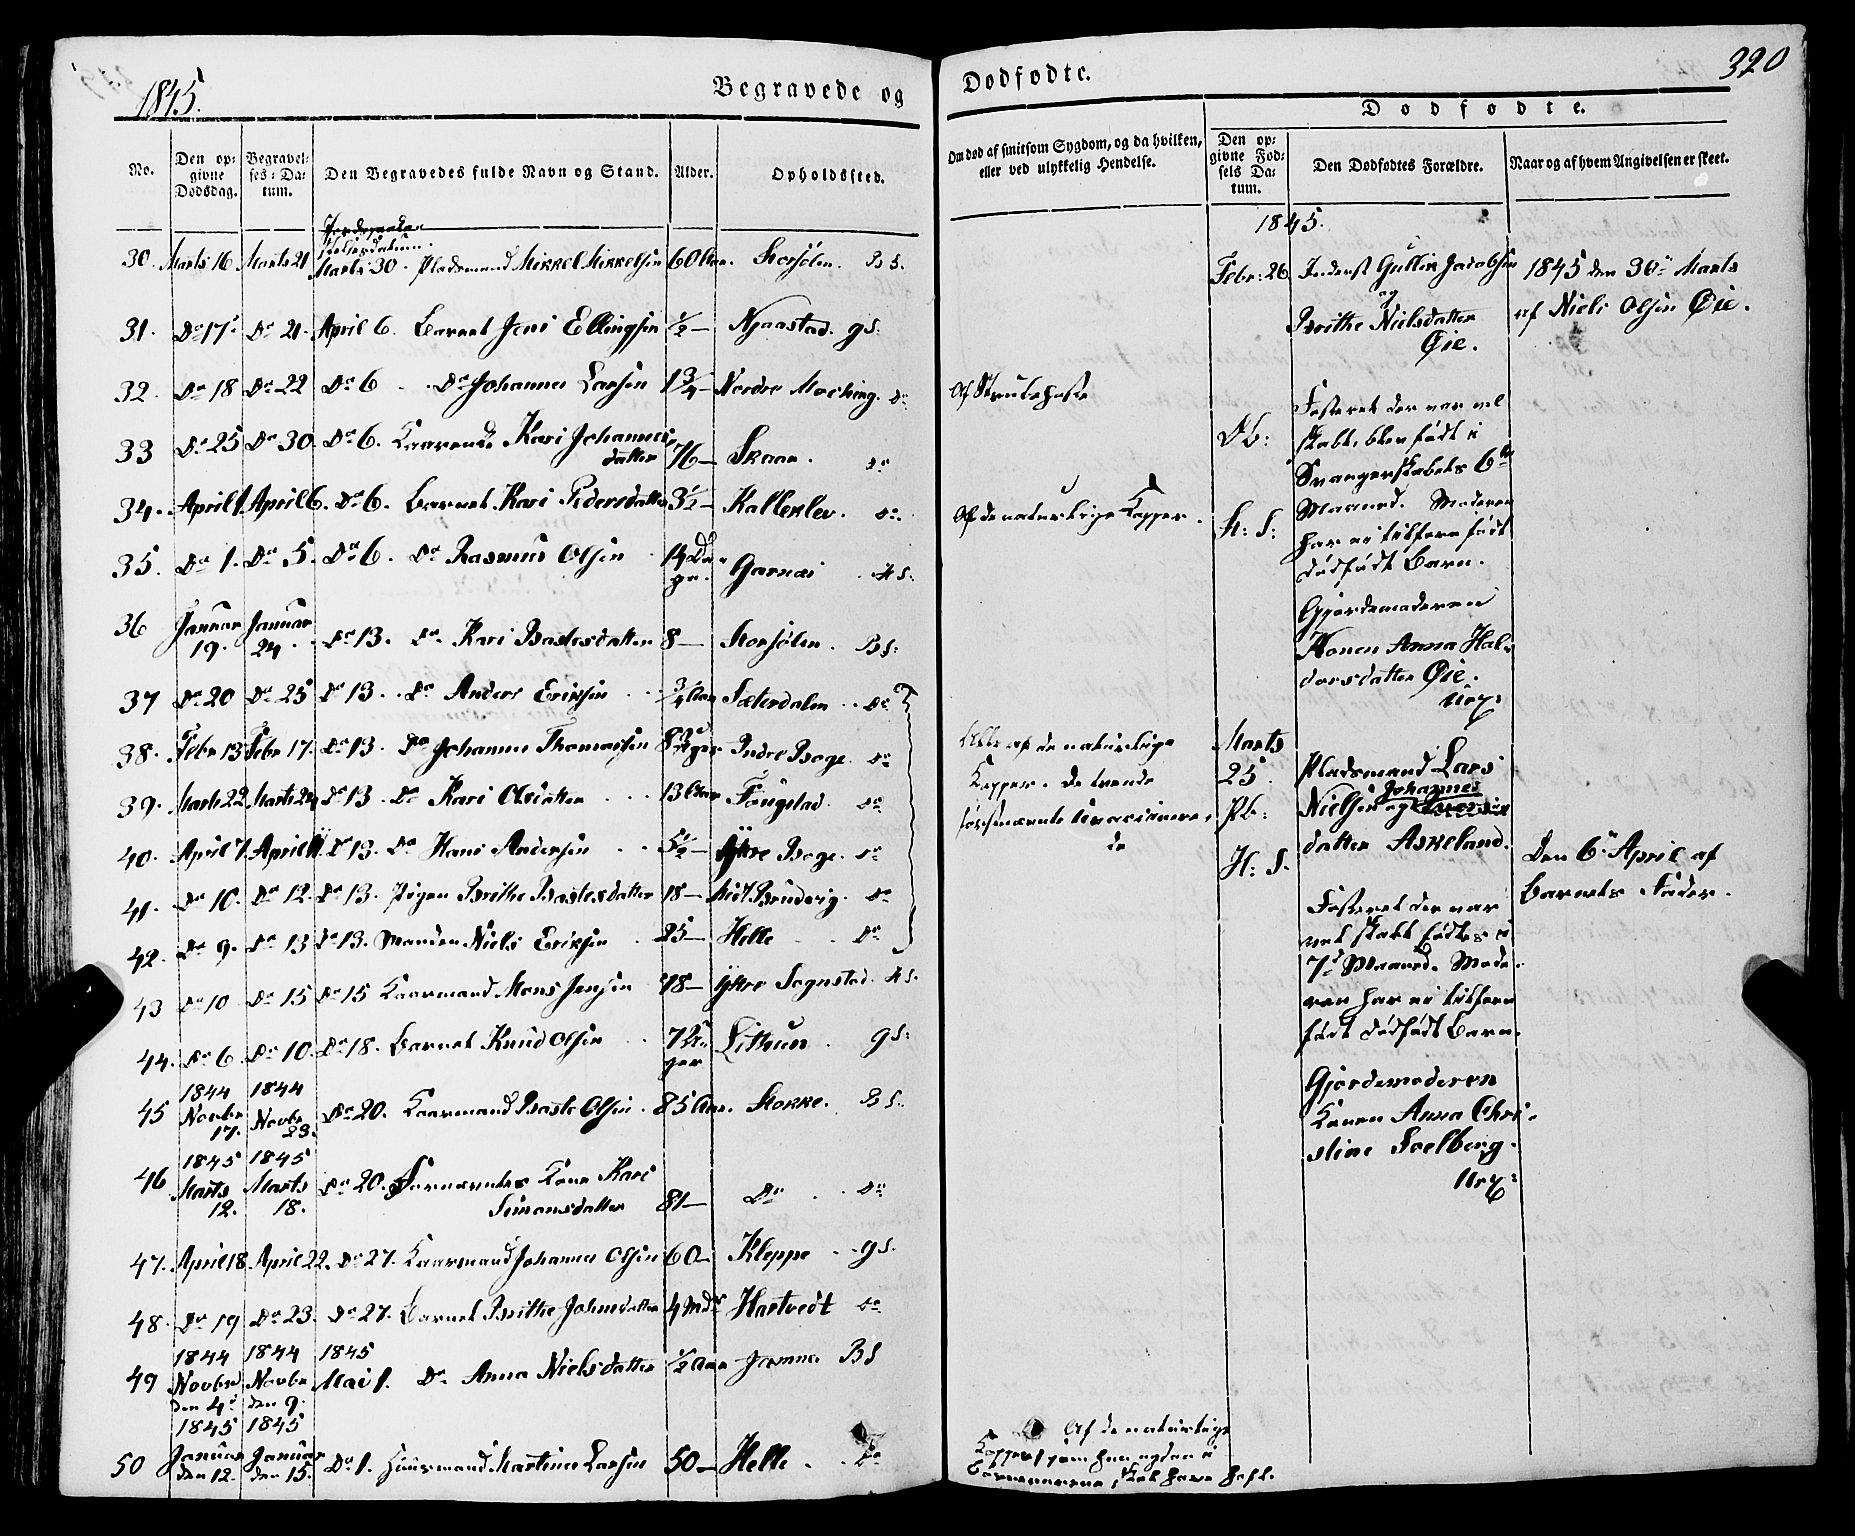 1845.
Begravede og
Dødfødte.
320
No.
Den op-
givne
Dødsdag.
Begravel-
ses-Da-
tum.
Den Begravedes fulde Navn og Stand.
Alder.
Opholdssted.
Om død af smitsom Sygdom, og da hvilken,
eller ved ulykkelig Hendelse.
Dødfødte.
Den op-
givne Fød-
sels Da-
tum.
Den Dødfødtes Forældre.
Naar og af hvem Angivelsen er skeet.
Jordspaa-
kastelsesdatum.
30. Marts 16 Marts 21 Marts 30. Pladsmand Mikkel Mikkelsen 60 Aar. Storsølen. B S.
31. Do 17. Do 21. April 6. Barnet Jens Ellingsen ½ — Njaastad. g S.
32. Do 18 Do 22 Do 6 Do Johannes Larsen 1¾ — Nordre Mocking. Do
33 Do 25 Do 30. Do 6. Kaarende Kari Johannes
datter 76 — Skaar. Do
34. April 1. April 6. Do 6. Barnet Kari Pedersdatter 3½ — Kalleklev. Do
35. Do 1. Do 5. Do 6. Do Rasmus Olsen 14 Da-
ge. Garnæs H S.
36 Januar
19. Januar
24. Do 13. Do Kari Bastesdatter 8 — Storsølen. B S:
37 Do 20 Do 25 Do 13. Do Anders Eriksen ¾ Aar Sæterdalen Do
38. Febr 13 Febr 17. Do 13. Do Johannes Thomassen 8 Uger Indre Boge. Do
39. Marts 22 Marts 24 Do 13. Do Kari Olsdatter 13 Aar Fougstad. Do
40. April 7. April 11. Do 13. Do Hans Andersen 5½ — Ytre Boge. Do
41. Do 10. Do 12. Do 13. Pigen Brithe Bastesdatter 18 — Midt Brudvig. Do
42. Do 9. Do 13 Do 13. Manden Niels Eriksen 25 — Helle Do
43 Do 10 Do 15 Do 15 Kaarmand Mons Jensen 78 — Ytre Sognstad. H S.
44. Do 6. Do 10. Do 18. Barnet Knud Olsen 7 U-
ger Lithun. g S:
45 1844
Novbr
17. 1844
Novbr
23. Do 20. Kaarmand Baste Olsen 85 Aar. Stokke. B S.
46 1845
Marts
12. 1845
Marts
18. Do 20. Fornævntes Kone Kari
Simonsdatter 81 — Do Do
47. April 18 April 22. Do 27. Kaarmand Johannes Olsen 60 — Kleppe g S.
48. Do 19 Do 23. Do 27. Barnet Brithe Johnsdatter 4 Mdr Hartvedt Do
49 1844
Novbr
den 4. 1844
Novbr
den 9. 1845
Mai 1. Do Anna Nielsdatter ½ Aar Jamne. B S
50 1845
Januar
den 12. 1845
Januar
den 15. Do 1. Huusmand Martinus Larsen 50 — Helle. Do
Af Strubehoste
Af de naturlige Kopper.
Alle af de naturlige
Kopper. De trende
førstnævnte uvaccinere-
de
Af de naturlige
Kopper, som han ogsaa i
Barneaarene skal have haft.
1845.
Febr: 26
Db:
H: S:
Inderst Gullik Jacobsen
og
Brithe Nielsdatter
Øie.
Fosteret der var vel
skabt, blev født i
Svangerskabets 6te
Maaned. Moderen
har ei tilforn født
dødfødt Barn.
Gjordemoderen
Konen Anna Hal-
dorsdatter Øie.
1845 den 30. Marts
af Niels Olsen Øie.
Marts
25.
Pb:
H: S.
Pladsmand Lars
Nielsen og Johannes
datter Askeland.
Fosteret der var
vel skabt fødtes i
7d Maaned. Mode-
ren har ei tilforn
født dødfødt Barn.
Gjordemoderen
Konen Anna Chri-
stine Soelberg.
Den 6. April af
Barnets Fader.